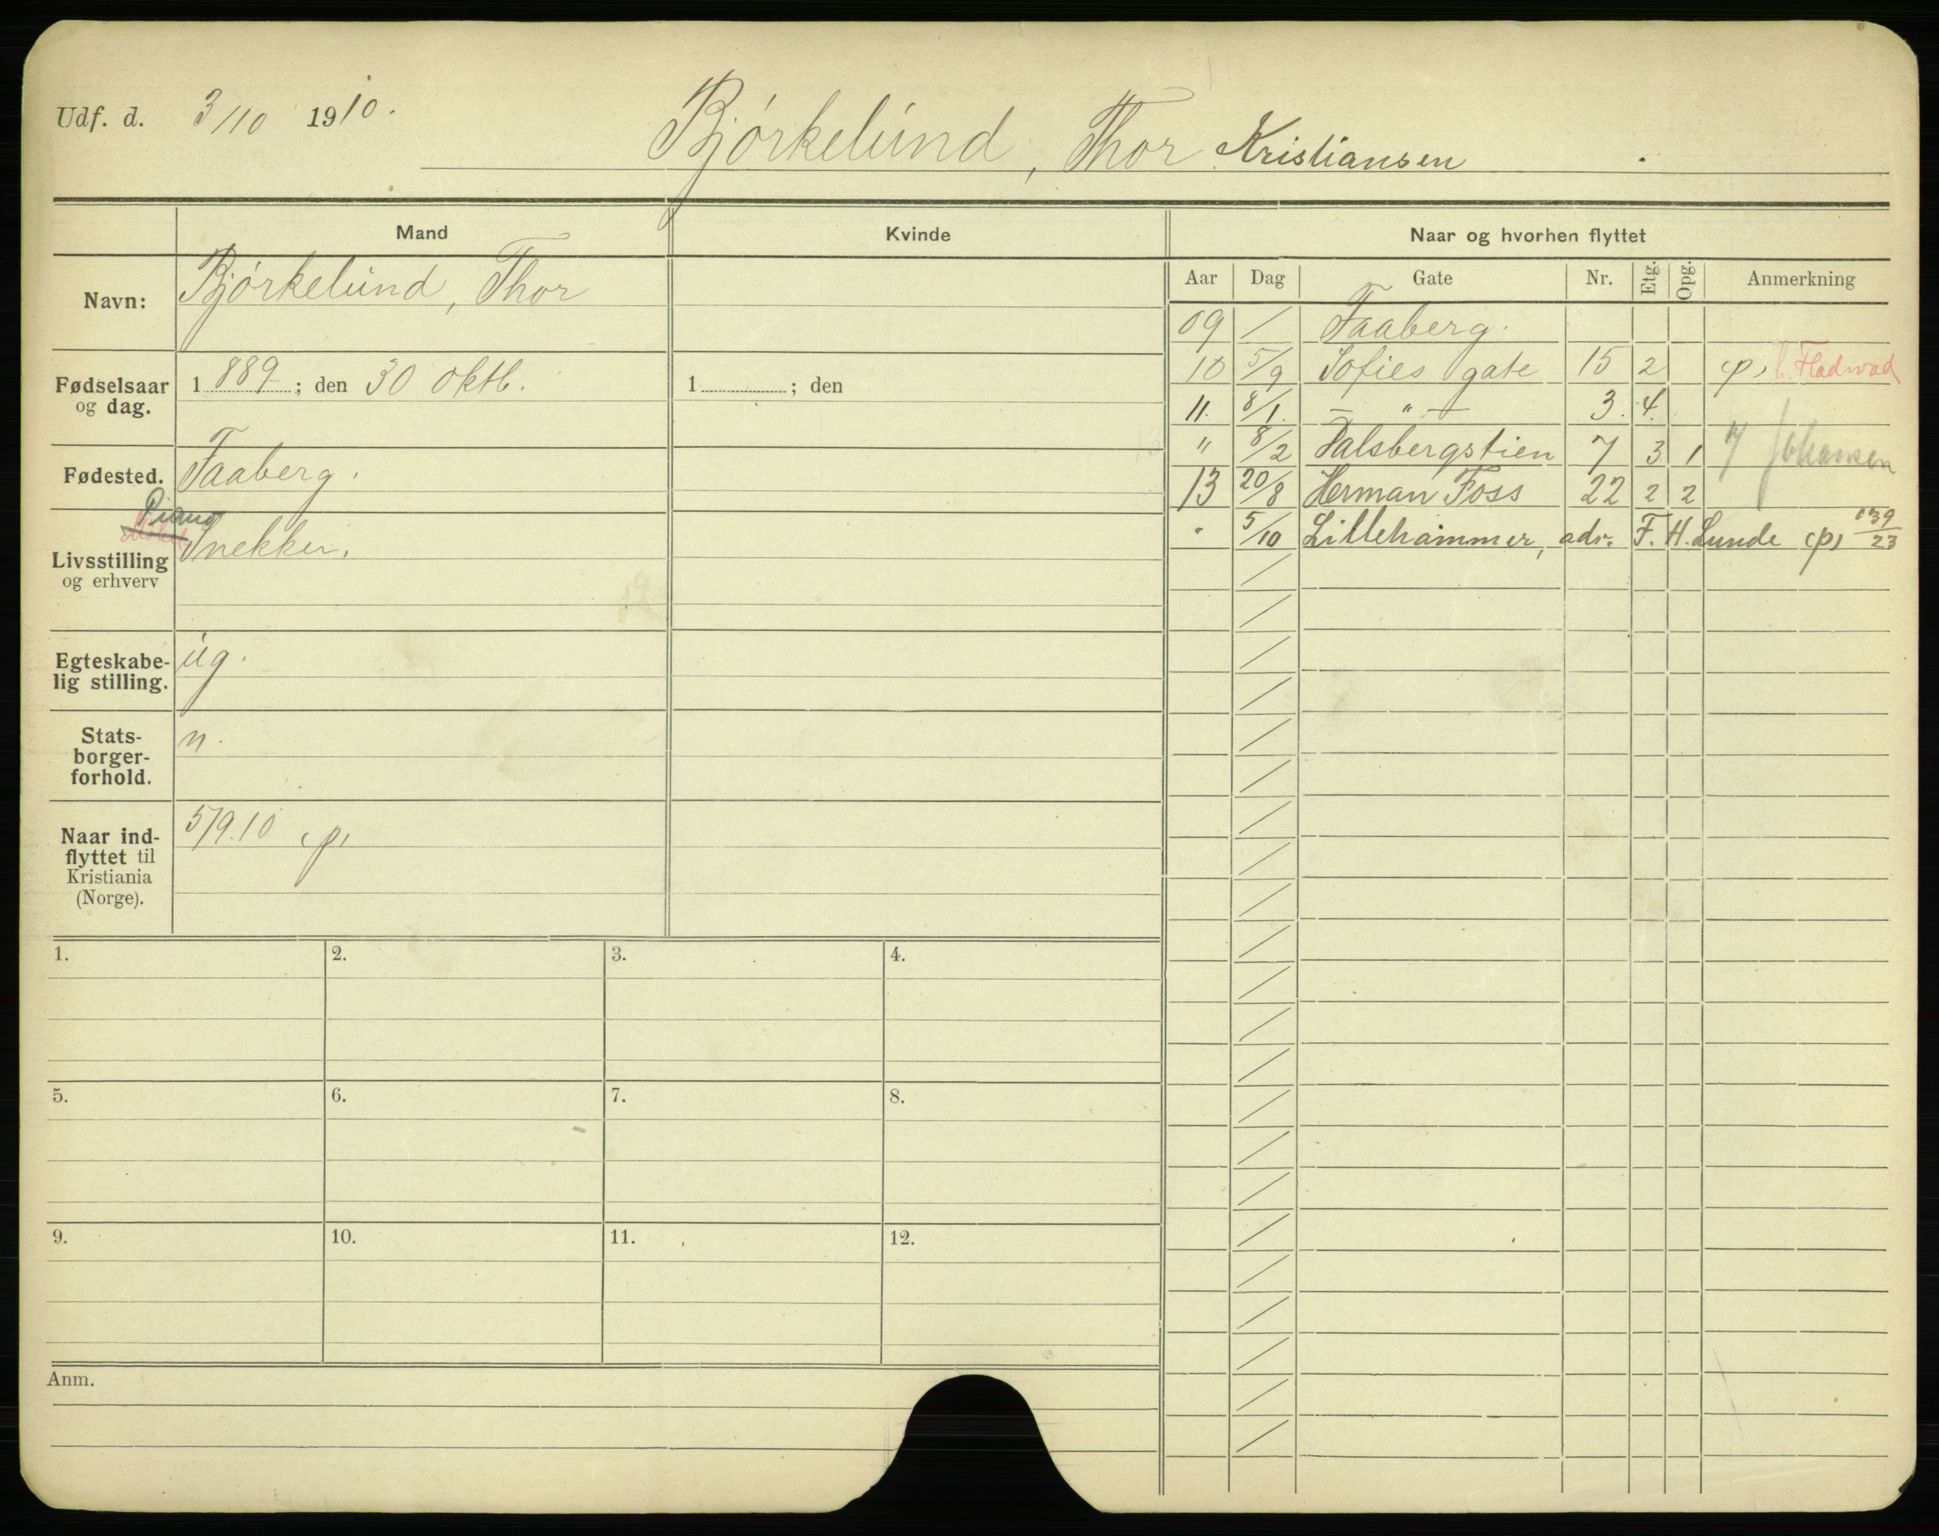 Udf. d. 3/10 1910.
Bjørkelund, Thor Kristiansen
Mand Kvinde
Navn: Bjørkelund, Thor
Fødselsaar og dag. 1889; den 30 oktb. 1 ; den
Fødested. Faaberg.
Piano
Livsstilling og erhverv Snekker.
Egteskabe-
lig stilling. ug.
Stats-
borger-
forhold. n.
Naar ind-
flyttet til
Kristiania
(Norge). 5/9.10 (p)
1. 2. 3. 4.
5. 6. 7. 8.
9. 10. 11. 12.
Anm.
Naar og hvorhen flyttet
Aar Dag Gate Nr. Etg. Opg. Anmerkning
09 / Faaberg.
10 5/9 Sofies gate 15 2 (p)
11. 8/1. — " — 3. 4.
" 8/2 Falsbergstien 7 3 1 Johansen
13 20/8 Herman Foss 22 2 2
" 5/10 Lillehammer, adr. F. H. Lunde (p) 139/23